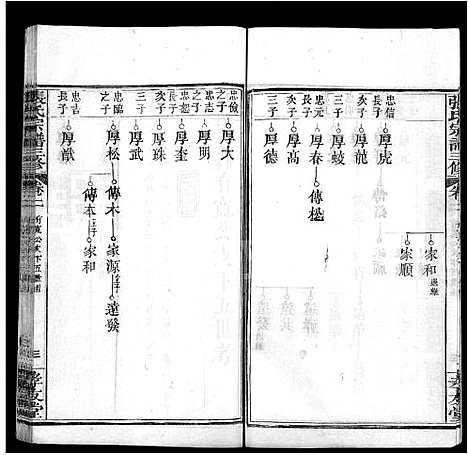 張氏宗譜三修
卷二
家和
家順
忠信
長子
厚虎
次子
厚龍
三子
厚蛟
忠元
長子
厚春
傳松
次子
厚高
三子
厚德
忠儉
之子
厚大
忠志
之子
厚明
忠恕
長子
厚奎
次子
厚珠
三子
厚武
忠臨
之子
厚松
傳木
家源
遠發
傳本
家和
忠吉
長子
厚猷
張氏宗譜三修
卷二
孝友堂